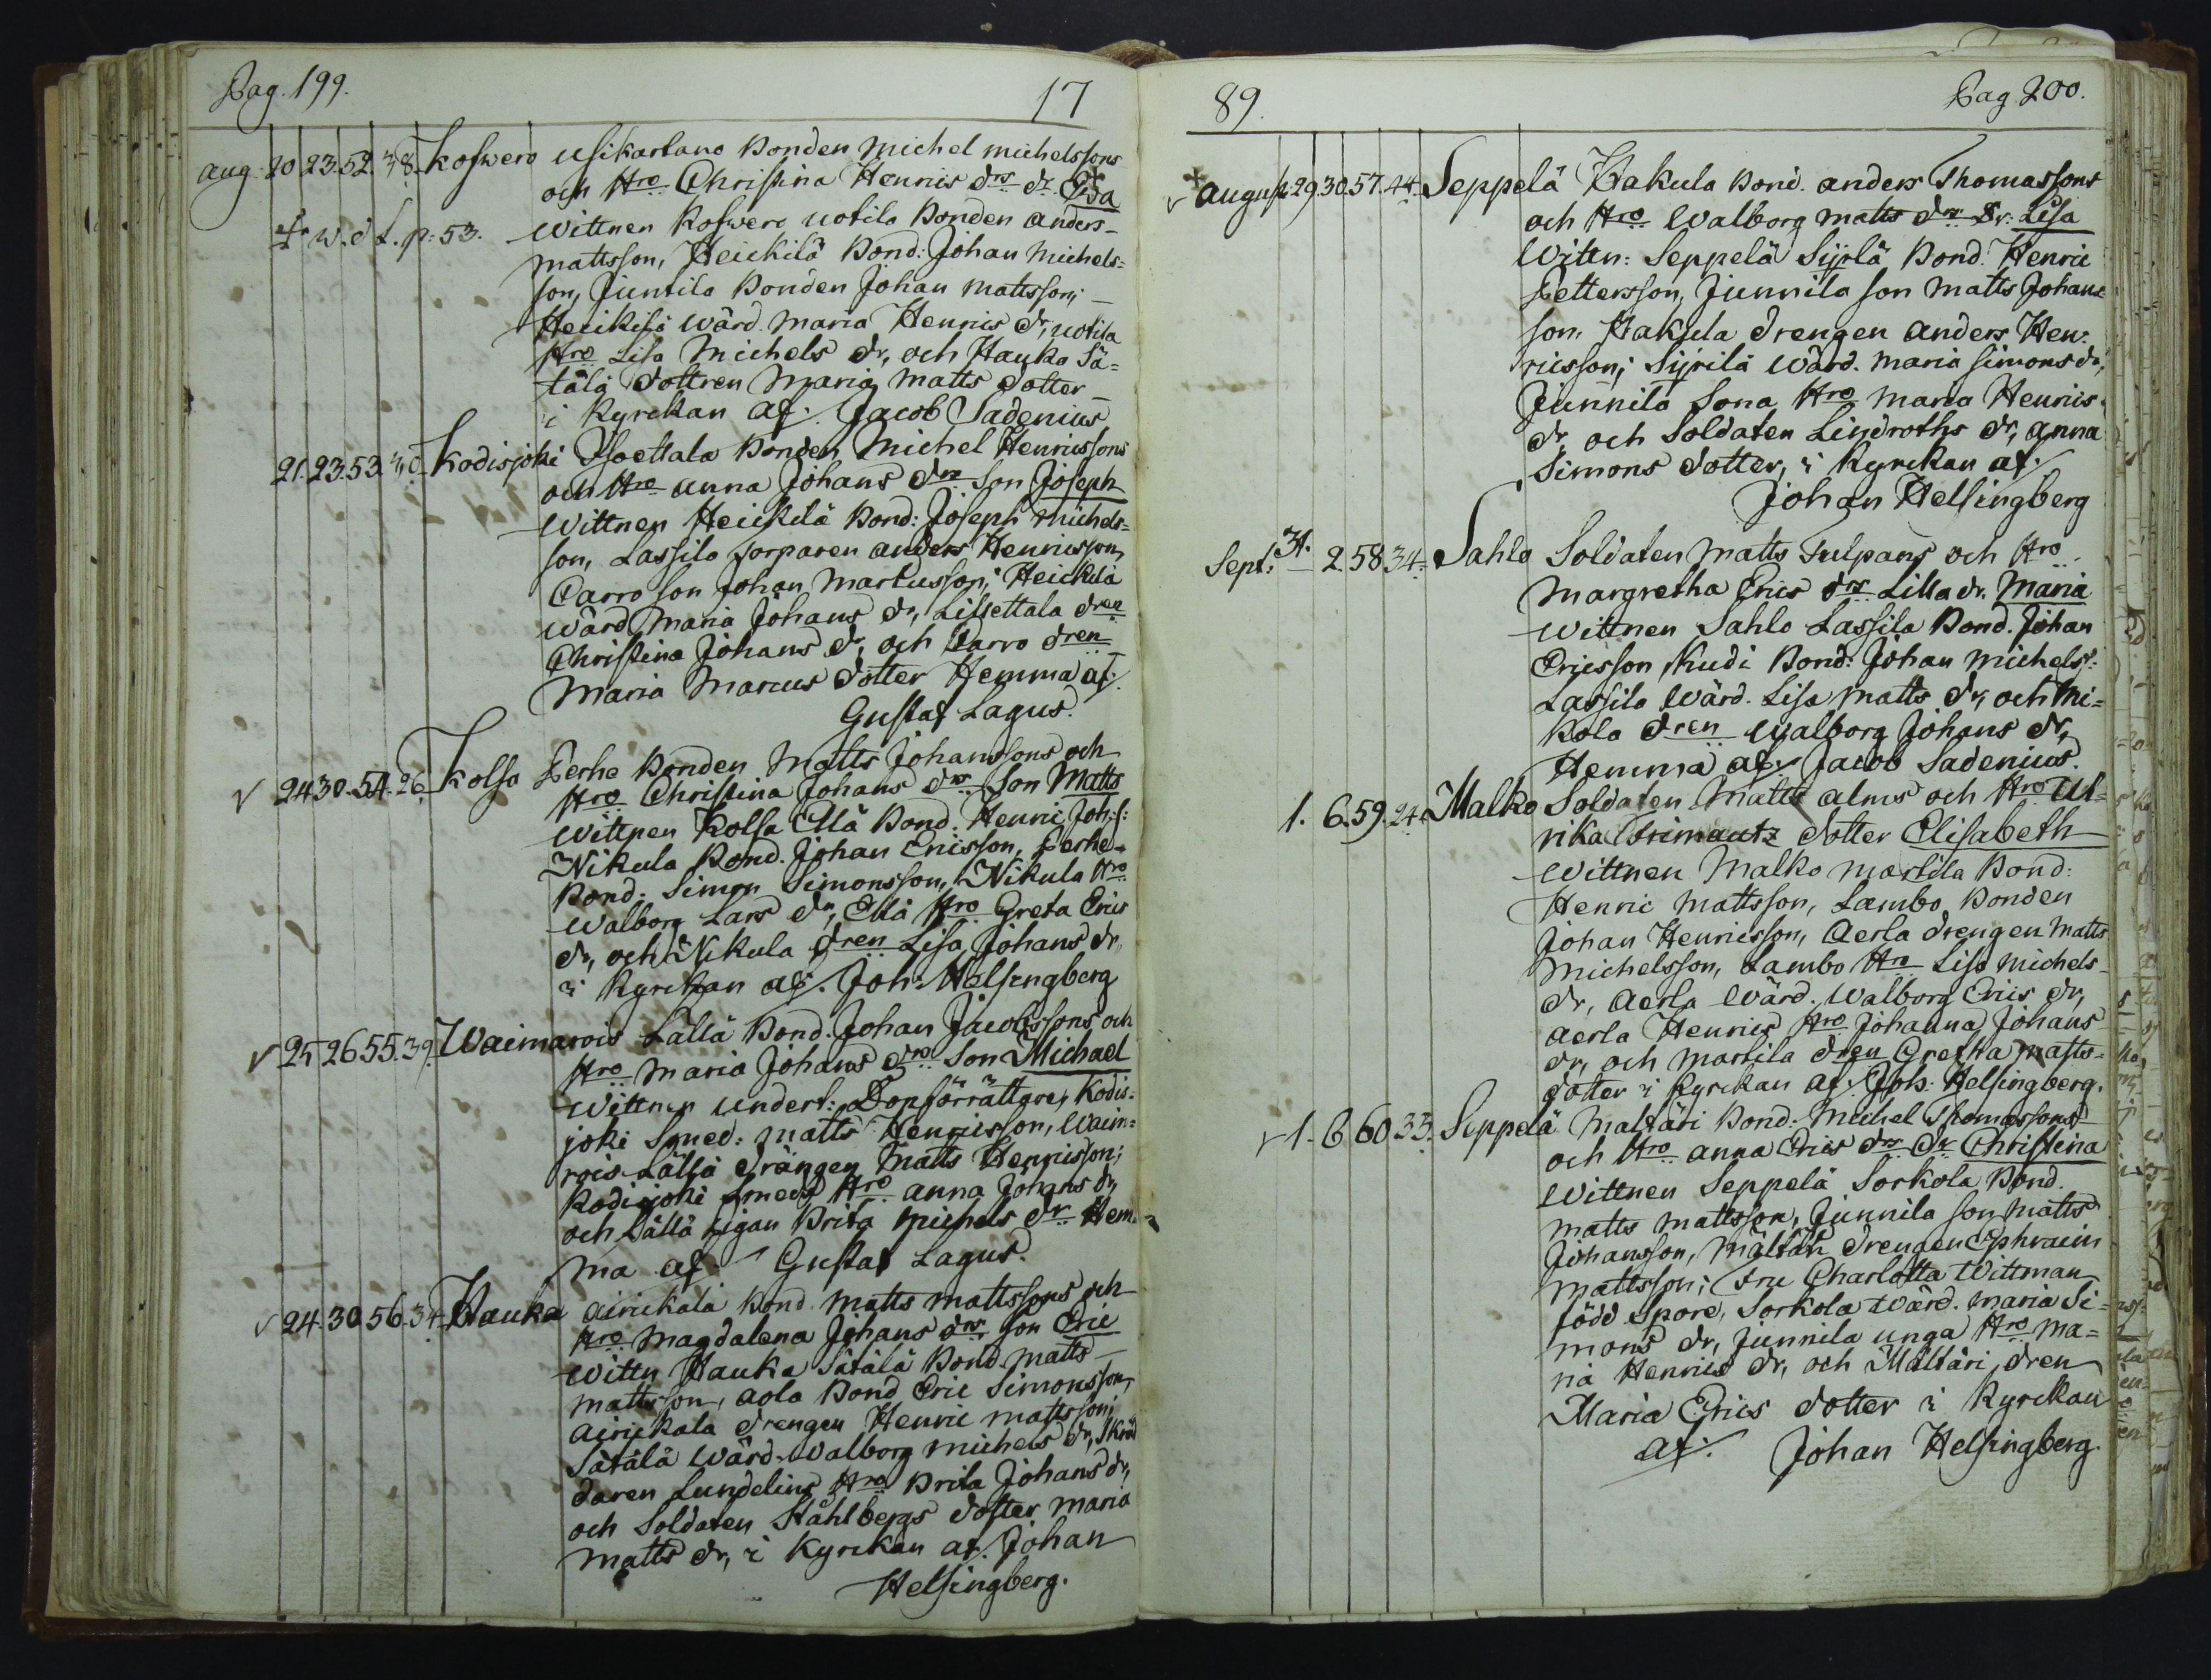 Pag. 199.
17
aug. 20 23. 52. 38. Koswero Usikartano Bonden Michel Michelssons
och Hro Christina Henrics drs dr
+ w. d L. p. 53.
Wittnen Koswero Uotila Bonden Anders
Mattsson, Heickilä Bond: Johan Michels=
son, Juntila Bonden Johan Mattsson;
Heickilä Wärd. Maria Henrics dr, Uotila
Hro Lisa Michels dr, och Hauka Sä=
tälä dottren Maria Matts dotter
i Kyrckan af. Jacob Sadenius
21. 23. 53. 40. Kodisjoki Isoettala Bonden Michel Henricssons
och Hro Anna Johans drs Son Joseph
Wittnen Heickilä Bond: Joseph Michels=
son, Lassila Torparen Anders Henricsson,
Carro son Johan Marcusson; Heickilä
Wärd Maria Johans dr, Lillettala dren
Christina Johans dr, och Carro dren
Maria Marcus dotter Hemma af.
Gustaf Lagus.
24 30. 54. 26. Kolla Perhe Bonden Matts Johanssons och
Hro Christina Johans drs Son Matts
Wittnen Kolla Ellä Bond. Henric Joh:s:
Nikula Bond. Johan Ericsson, Perhe
Bond: Simon Simonsson, Nikula Hro
Walborg Lars dr, Ellä Hro Greta Erics
dr, och Nikula dren Lisa Johans dr,
i Kyrckan af. Joh: Helsingberg
25 26 55. 39. Waimarois Lällä Bond. Johan Jacobssons och
Hro Maria Johans drs Son Michael
Wittnen undert: Dopförrättare, Kodis=
joki Smed: Matts Henricsson, Waim=
rois Lällä drängen Matts Henricsson;
Kodisjoki Smeds Hro Anna Johans dr,
och Lällä Pigan Brita Michels dr Hem=
ma af. Gustaf Lagus.
24. 30. 56. 34. Hauka Airickala Bond Matts Mattssons och
Hro Magdalena Johans drs Son Eric
Wittn Hauka Sätälä Bond Matts
Mattsson, Aola Bond Eric Simonsson,
Airickala drengen Henric Mattsson;
Sätälä Wärd. Walborg Michels dr, Skräd
daren Lundelins Hro Brita Johans dr,
och Soldaten Ståhlbergs dotter Maria
Matts dr, i Kyrckan af. Johan
Helsingberg.
89.
Pag 200.
August 29 30. 57. 44. Seppelä Pakula Bond. Anders Thomassons
och Hro Walborg Matts drs dr: Lisa
Wittn: Seppelä Sijrlä Bond. Henric
Pettersson, Junnila son Matts Johans
son, Pakula drengen Anders Hen=
ricsson; Sijrilä Wärd. Maria Simons dr,
Junnila Sona Hro Maria Henrics
dr, och Soldaten Lindroths dr, Anna
Simons dotter, i Kyrckan af.
Johan Helsingberg
Sept: 31. 2. 58 34. Sahlo Soldaten Matts Tulpans och Hro
Margretha Erics drs Lilla dr. Maria
Wittnen Sahlo Lassila Bond. Johan
Ericsson Kudi Bond: Johan Michelss:
Lassila Wärd. Lisa Matts dr, och Mi=
kola dren Walborg Johans dr,
Hemma af. Jacob Sadenius.
1. 6. 59. 24. Malko Soldaten Matts Alms och Hro Ul=
rika dotter Elisabeth
Wittnen Malko Martila Bond:
Henric Mattsson, Lambo Bonden
Johan Henricsson, Aerla drengen Matts
Michelsson, Lambo Hro Lisa Michels
dr, Aerla Wärd. Walborg Erics dr,
Aerla Henrics Hro Johanna Johans
dr, och Martila dren Gretha Matts=
dotter i Kyrckan af. Joh: Helsingberg.
1. 6. 60 33. Seppelä Maltäri Bond. Michel Thomassons
och Hro Anna Erics drs dr Christina
Wittnen Seppelä Sorkola Bond.
Matts Mattsson, Junnila son Matts
Johansson, Mältäri drengen Ephraim
Mattsson; Fru Charlotta Wittman
född Spore, Sorkola Wärd. Maria Si=
mons dr, Junnila unga Hro Ma=
ria Henrics dr, och Mältäri dren
Maria Erics dotter i Kyrckan
af. Johan Helsingberg.